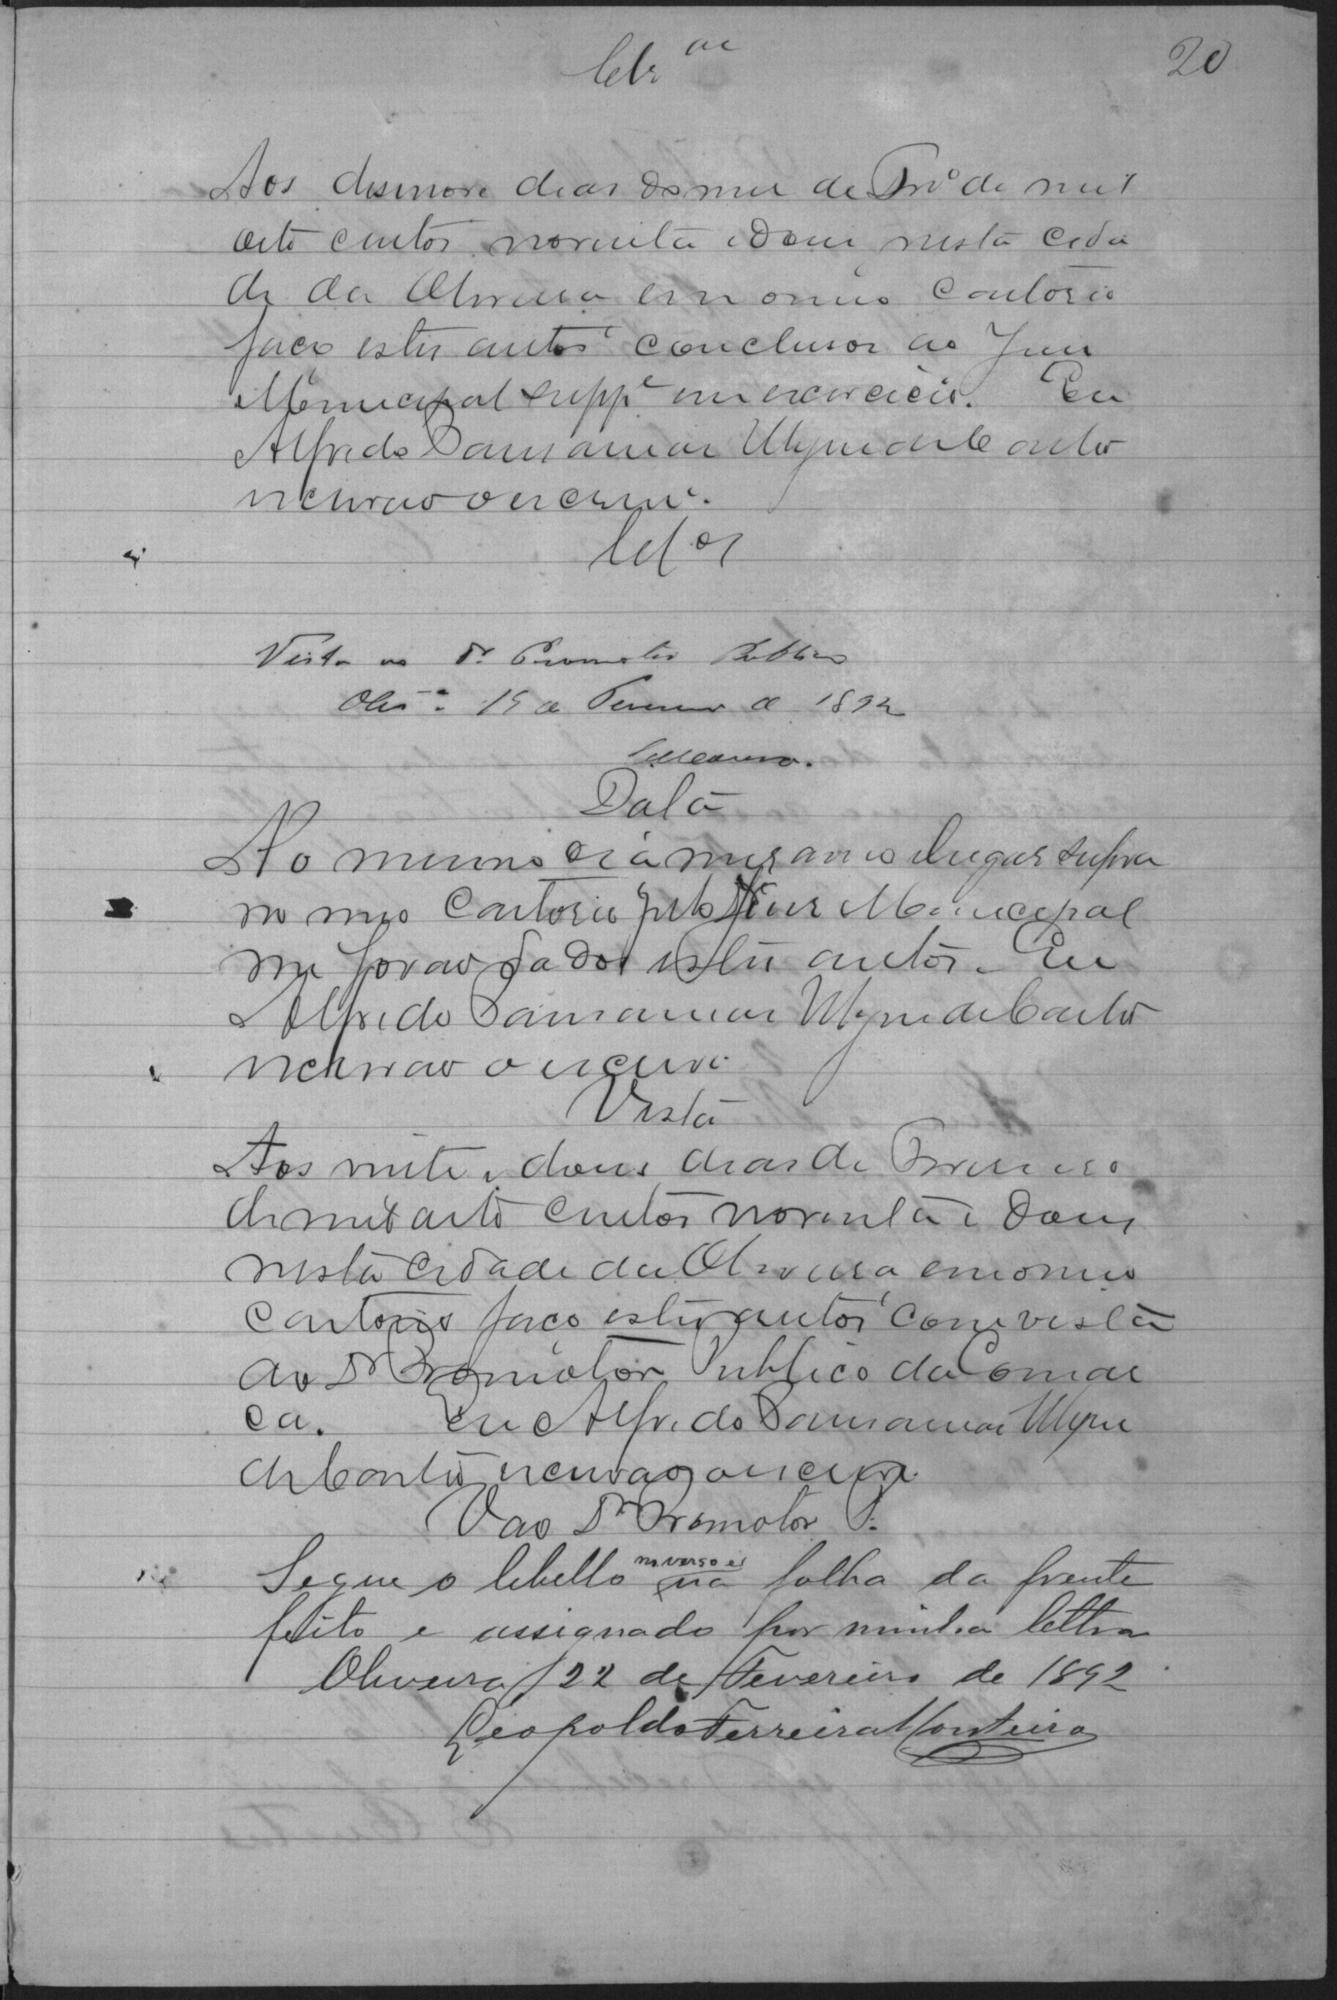 Clsam
20
Aos desenove dias do mez de Fevro de mil
oito centos noventa e dous nesta cida
de da Oliveira em o meu Cartorio
faço estes autos conclusos ao Juiz
Municipal suppe em exercicio. Eu
Alfredo
escrivão o escrevi.
Clsos
Vista ao Dr Promotor Publico
Olivra 19 de Fevereiro de 1892
Data
No mesmo dia mez anno e lugar supra
no meu Cartorio pelo Juiz Municipal
me forão dados estes autos. Eu
Alfredo
escrivão o escrevi
Vista
Aos vinte e dous dias de Fevereiro
de mil oito centos noventa e dous
nesta cidade da Oliveira em o meu
cartorio faço estes autos com vista
ao Dr Promotor Publico da Comar
ca. Eu Alfredo
escrivão o escrevi
V ao Dr Promotor P.
Segue o libello no verso e na folha da frente
feito e assignado por minha lettra
Oliveira 22 de Fevereiro de 1892
Leopoldo Ferreira Monteiro